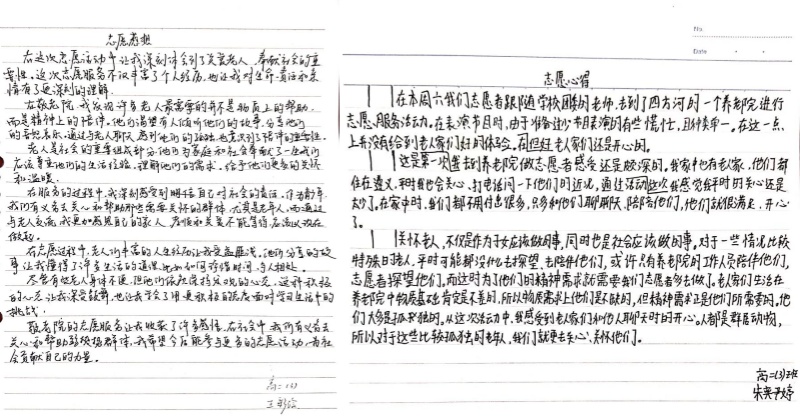 志愿感想
在这次志愿活动中让我深刻体会到了关爱老人、奉献社会的重
要性。这次志愿服务不仅丰富了个人经历,也让我对生命、责任和亲
情有了更深刻的理解。
在敬老院,我发现许多老人最需要的并不是物质上的帮助,
而是精神上的陪伴。他们渴望有人倾听他们的故事,分享他们
的喜怒哀乐,通过与老人聊天,感到他们的孤独,也意识到了陪伴的重要性。
老人是社会的重要组成部分,他们为家庭和社会奉献了一生,我们
应该尊重他们的生活经验,理解他们的需求,给予他们更多的关怀
和温暖。
在服务的过程中,我深刻感受到明信自己对社会的责任。作为青年,
我们有义务去关心和帮助那些需要关怀的群体,尤其是老年人。而通过
与老人交流,我更加感恩自己的家人,孝顺和关爱不能等待,应该从现在
做起。
在志愿过程中,老人们丰富的人生经历让我受益匪浅。他们分享的故
事,让我懂得了许多生活的道理,比如如何珍惜时间,与人相处。
尽管有些老人身体不便,但他们依然保持乐观的心态,这种积极
的心态让我深受鼓舞,也让我学会了用更积极的态度面对学习生活中的
挑战。
敬老院的志愿服务让我收获了许多感悟,在社会中,我们有义务去
关心和帮助弱势群体,我希望今后能参与更多的志愿活动,为社
会贡献自己的力量。
高二(3)
No.
Date
志愿心得
在本周六我们志愿者跟随学校团委的老师,去到了四方河的一个养老院进行
志愿服务活动,在表演节目时,由于准备过少节目表演的有些慌忙,且种类单一。在这一点
上并没有给到老人家们好的体验。但但好老人家们还是开心的。
这是第一次去到养老院做志愿者感受还是颇深的。我家中也有老人家,他们都
住在遵义,平时我也会关心、打电话问一下他们的近况,通过活动这次我感觉我平时的关心还是
太少了。在家中时,我们都不用付出很多,只多和他们聊聊天、陪陪他们,他们就很满足、开心
了。
关怀老人,不仅是作为子女应该做的事,同时也是社会应该做的事。对于一些情况比较
特殊的老人,平时可能都没什么去探望、去陪伴他们,或许只有养老院的工作人员陪伴他们,
志愿者探望他们。而这时为了他们的精神需求就需要我们志愿者多去做了。老人家们生活在
养老院中物质基础肯定是不差的,所以物质需求上他们是不缺的,但精神需求正是他们所需要的。他
们大多是孤来独的。从这次活动中,我感受到老人家们和他人聊天时的开心。人都是群居动物,
所以对于这些比较孤独的老年人,我们就更去关心、关怀他们。
高二(3)班